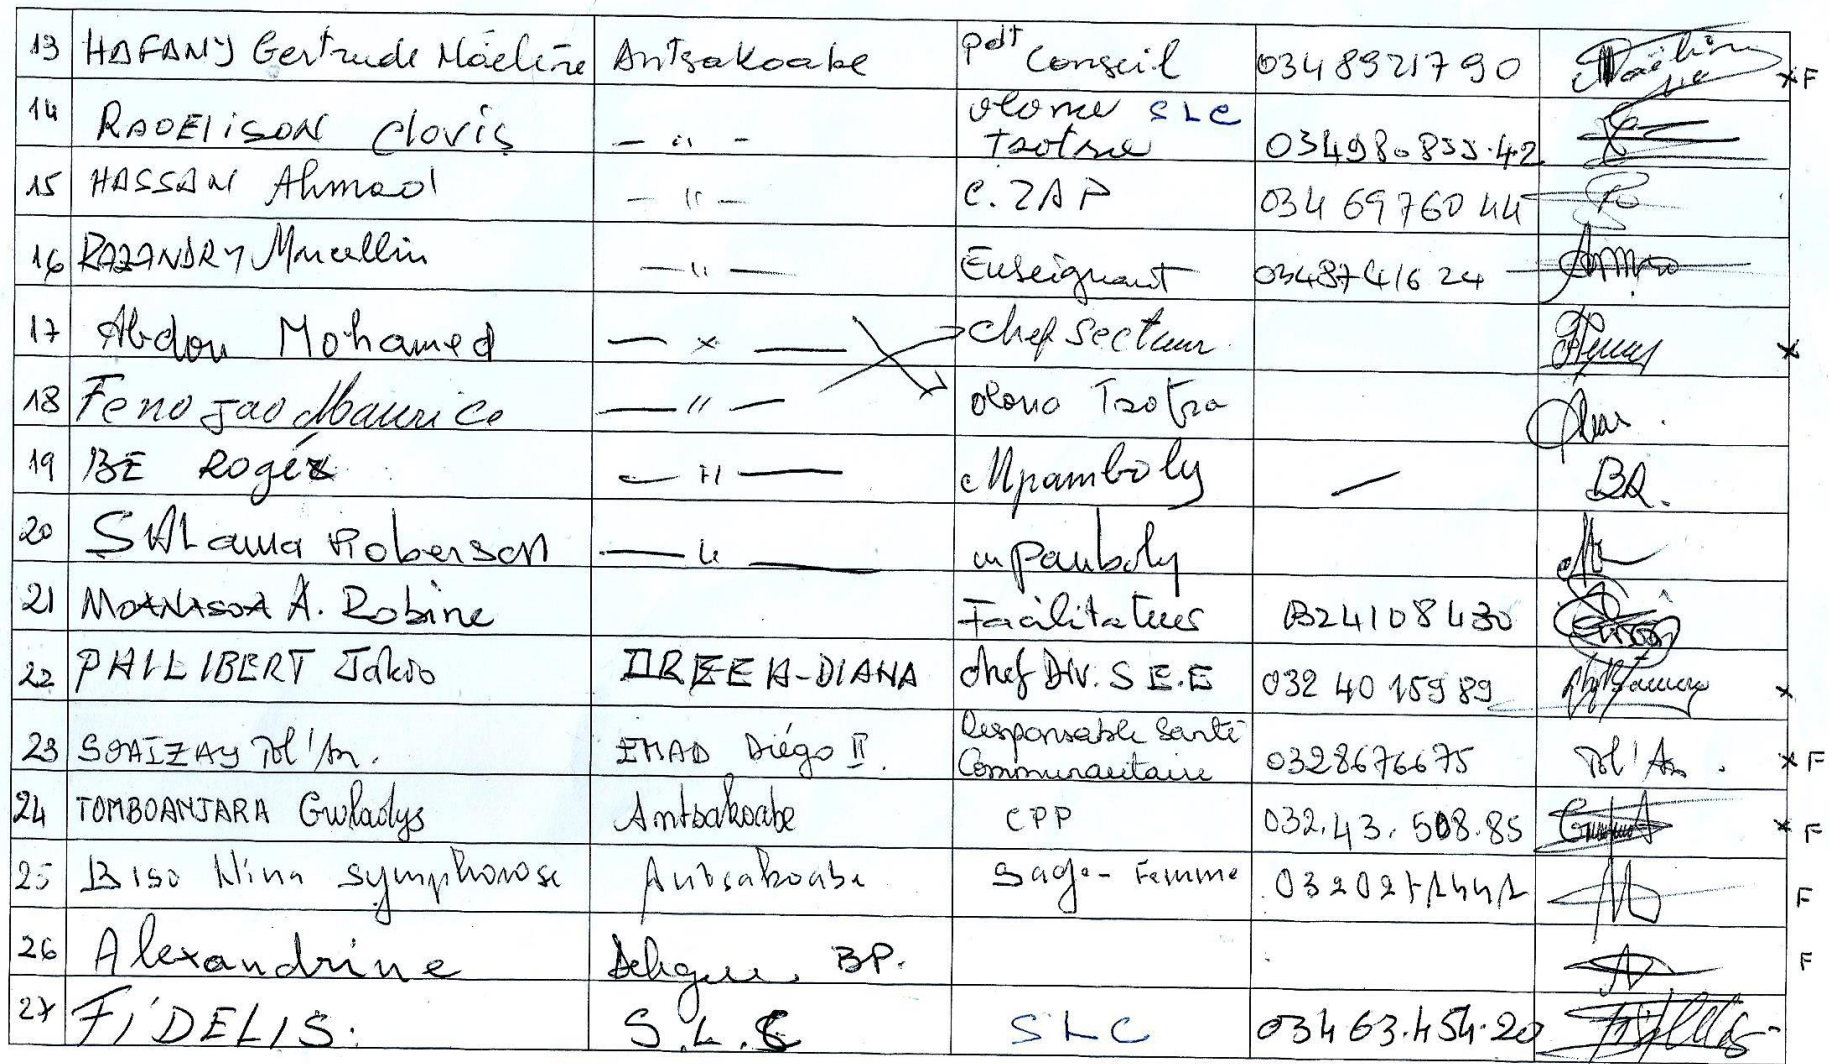 13 HAFANY Gertrude Näeline Antsakoabe Pdt Conseil 0348921790 F
14 RAOELISON Clovis — " — olona Tsotra SLC 03498.855.42
15 HASSAN Ahmad — " — C. ZAP 034 69760 44
16 RAZANDRY Marcellin — " — Enseignant 03487416 24
17 Abdou Mohamed — x — chef Secteur x
18 Feno Jao Maurice — " — olona Tsotra
19 BE Roger — " — Mpamboly — BR.
20 SALama Roberson — " — mpamboly
21 MOANASOA A. Robine Facilitateurs 0324108430
22 PHILIBERT Jakso DREEH-DIANA chef Div. S E.E 032 40 159 89 x
23 SOAIZAY Pol'An. EMAD Diégo II. Responsable Santé Communautaire 0328676675 Pol'An. x F
24 TOMBOANJARA Gwladys Antsakoabe CPP 032.43.508.85 x F
25 BISO Nina Symphorose Antsakoabe Sage-Femme F
26 Alexandrine BP. F
27 FIDELIS. S.L.C SLC 03463.454.20